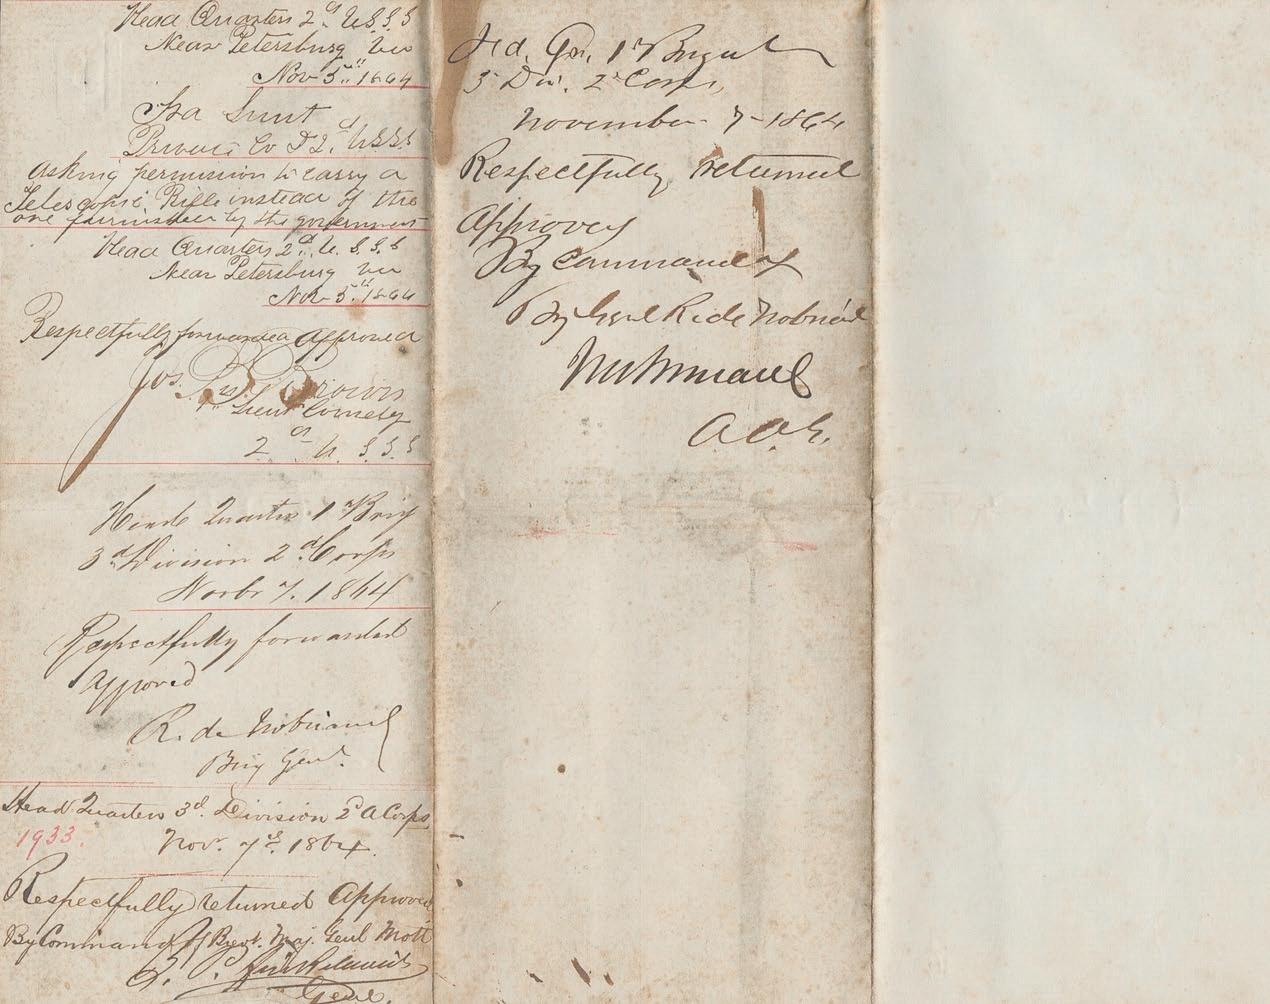 Head Quarters 2d U.S.S.S
Near Petersburg Va
Nov 5th 1864
Ira
Private Co 2d U.S.S.S
Asking permission to carry a
Telescopic Rifle instead of the
one furnished by the government
Head Quarters 2d U. S. S. S
Near Petersburg Va
Nov 5th 1864
Respectfully forwarded Approved
Jos.
1st Lieut Comdg
2d U. S. S. S
Head Quarters 1st Brig
3d Division 2d Corps
Novbr 7. 1864
Respectfully forwarded
Approved
R. de Trobriand
Brig Genl.
Head Quarters 3d. Division 2d A Corps
1933.
Nov. 7th. 1864.
Respectfully returned Approved
By Command of Brevt. Maj. Genl Mott
Hd. Qrs. 1st Brigade
3 Div. 2d Corps,
November 7-1864
Respectfully returned
Approved
By Command of
Brig Genl R de Trobriand